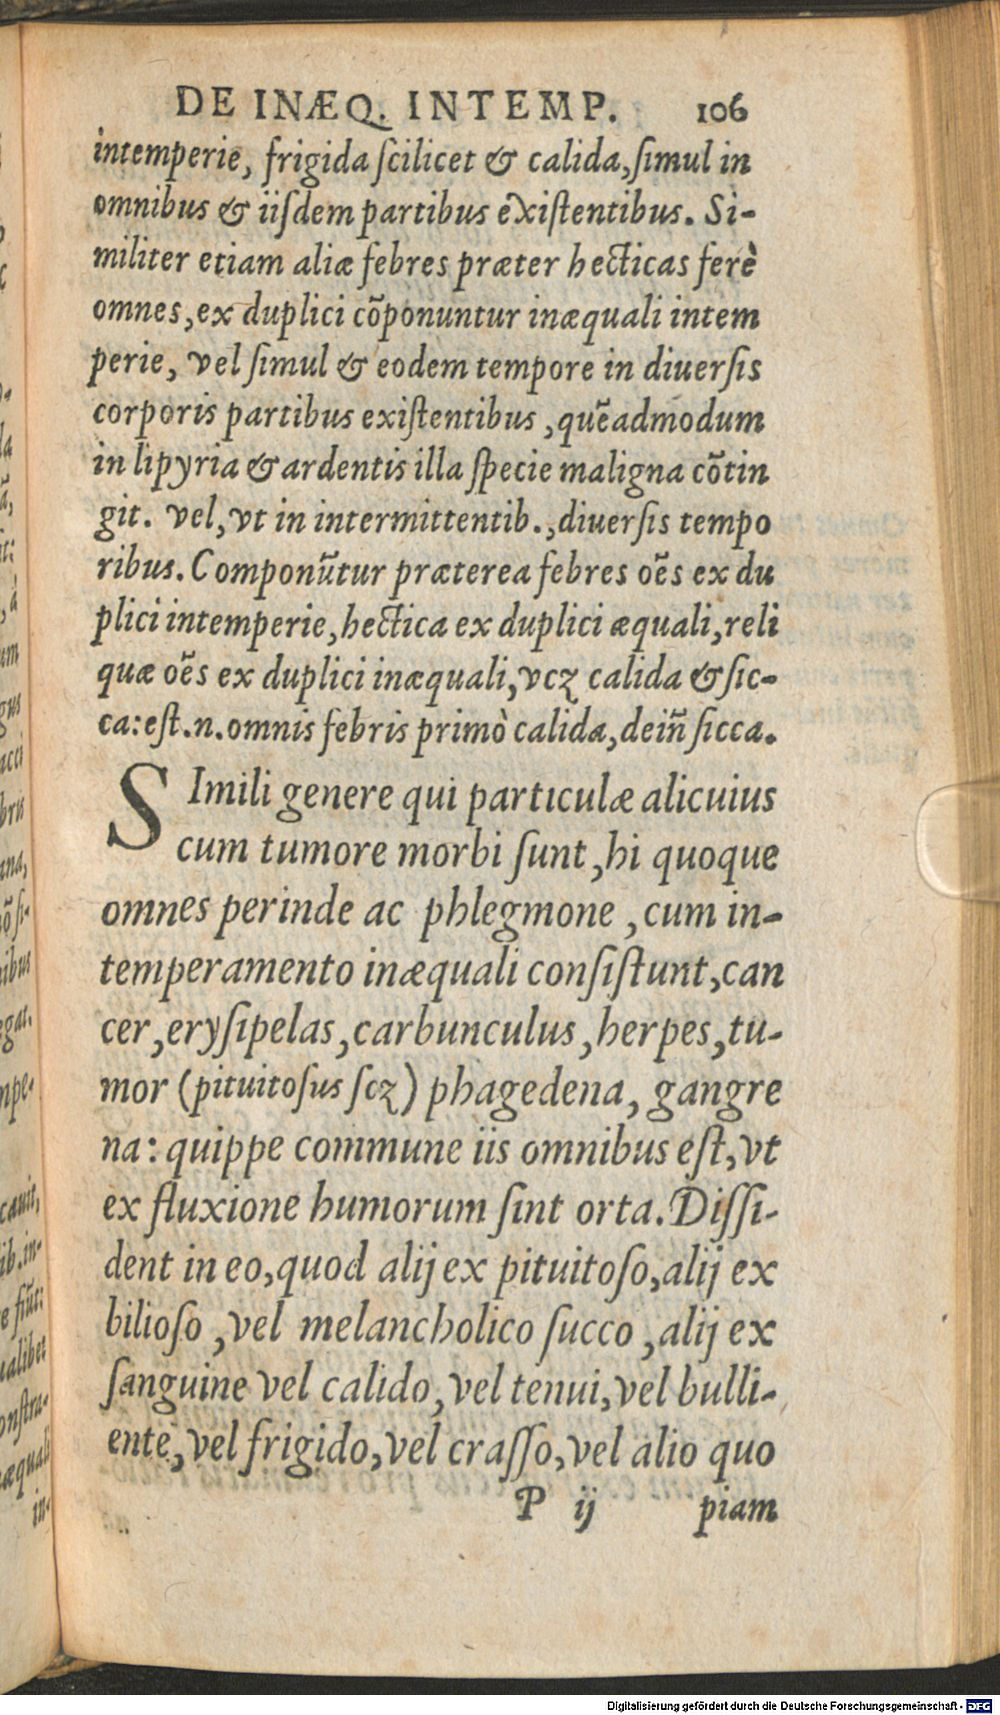 DE INÆQ. INTEMP. 106
intemperie, frigida ſcilicet & calida, ſimul in
omnibus & iiſdem partibus exiſtentibus. Si-
militer etiam aliæ febres præter hecticas ferè
omnes, ex duplici cõponuntur inæquali intem
perie, vel ſimul & eodem tempore in diuerſis
corporis partibus exiſtentibus, quẽadmodum
in lipyria & ardentis illa ſpecie maligna cõtin
git. vel, vt in intermittentib., diuerſis tempo
ribus. Componũtur præterea febres oẽs ex du
plici intemperie, hectica ex duplici æquali, reli
quæ oẽs ex duplici inæquali, vcꝫ calida & ſic-
ca: eſt.n. omnis febris primò calida, dein̄ ſicca.
SImili genere qui particulæ alicuius
cum tumore morbi ſunt, hi quoque
omnes perinde ac phlegmone, cum in-
temperamento inæquali conſiſtunt, can
cer, eryſipelas, carbunculus, herpes, tu-
mor (pituitoſus ſcꝫ) phagedena, gangre
na: quippe commune iis omnibus eſt, vt
ex fluxione humorum ſint orta. Diſſi-
dent in eo, quod alij ex pituitoſo, alij ex
bilioſo, vel melancholico ſucco, alij ex
ſanguine vel calido, vel tenui, vel bulli-
ente, vel frigido, vel craſſo, vel alio quo
P ij piam
Digitalisierung gefördert durch die Deutsche Forschungsgemeinschaft - DFG